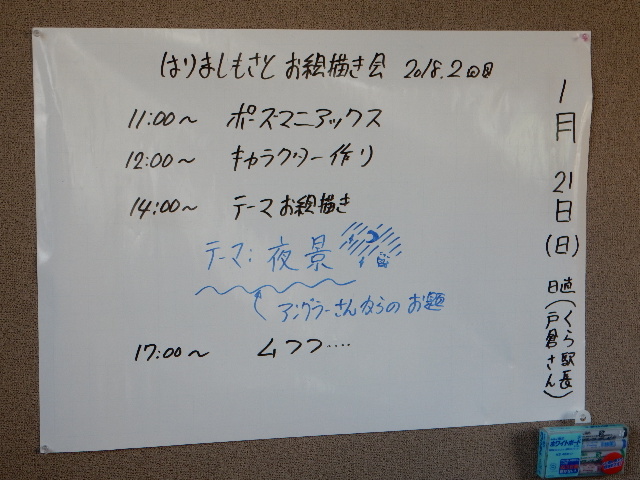 はりましもさと お絵描き会 2018.2回目
11:00～ ポーズマニアックス
12:00～ キャラクター作り
14:00～ テーマお絵描き
テーマ: 夜景
アングラーさんからのお題
17:00～ ムフフ····
1月21日(日)
日直(くら駅長 戸倉さん)
ホワイトボード